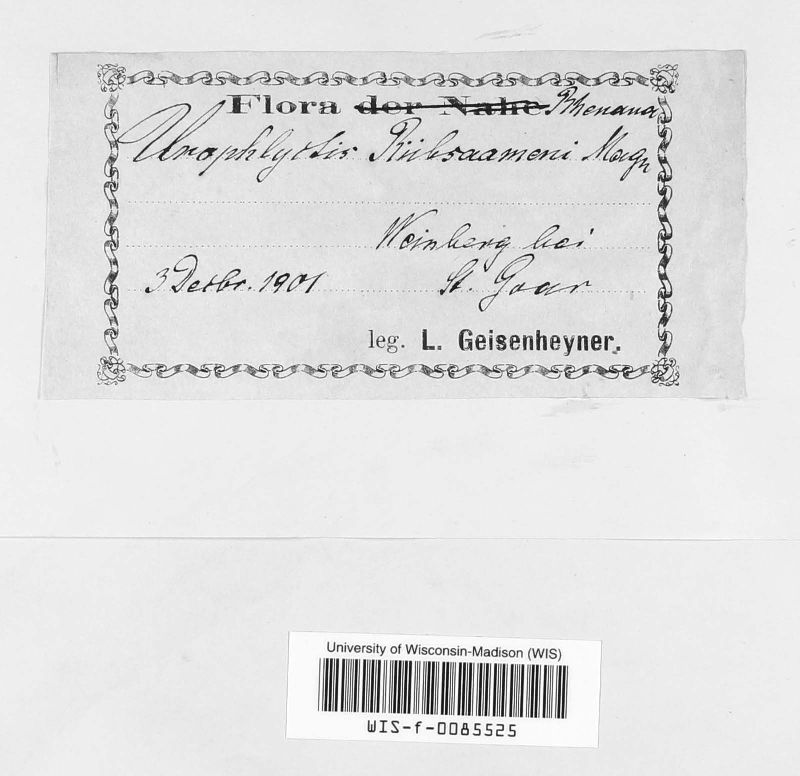 Flora der Nahe Rhenana
Urophlyctis Rübsaameni Magn
Weinberg bei
3 Decbr. 1901 St. Goar
leg. L. Geisenheyner.
University of Wisconsin-Madison (WIS)
WIS-f-0085525